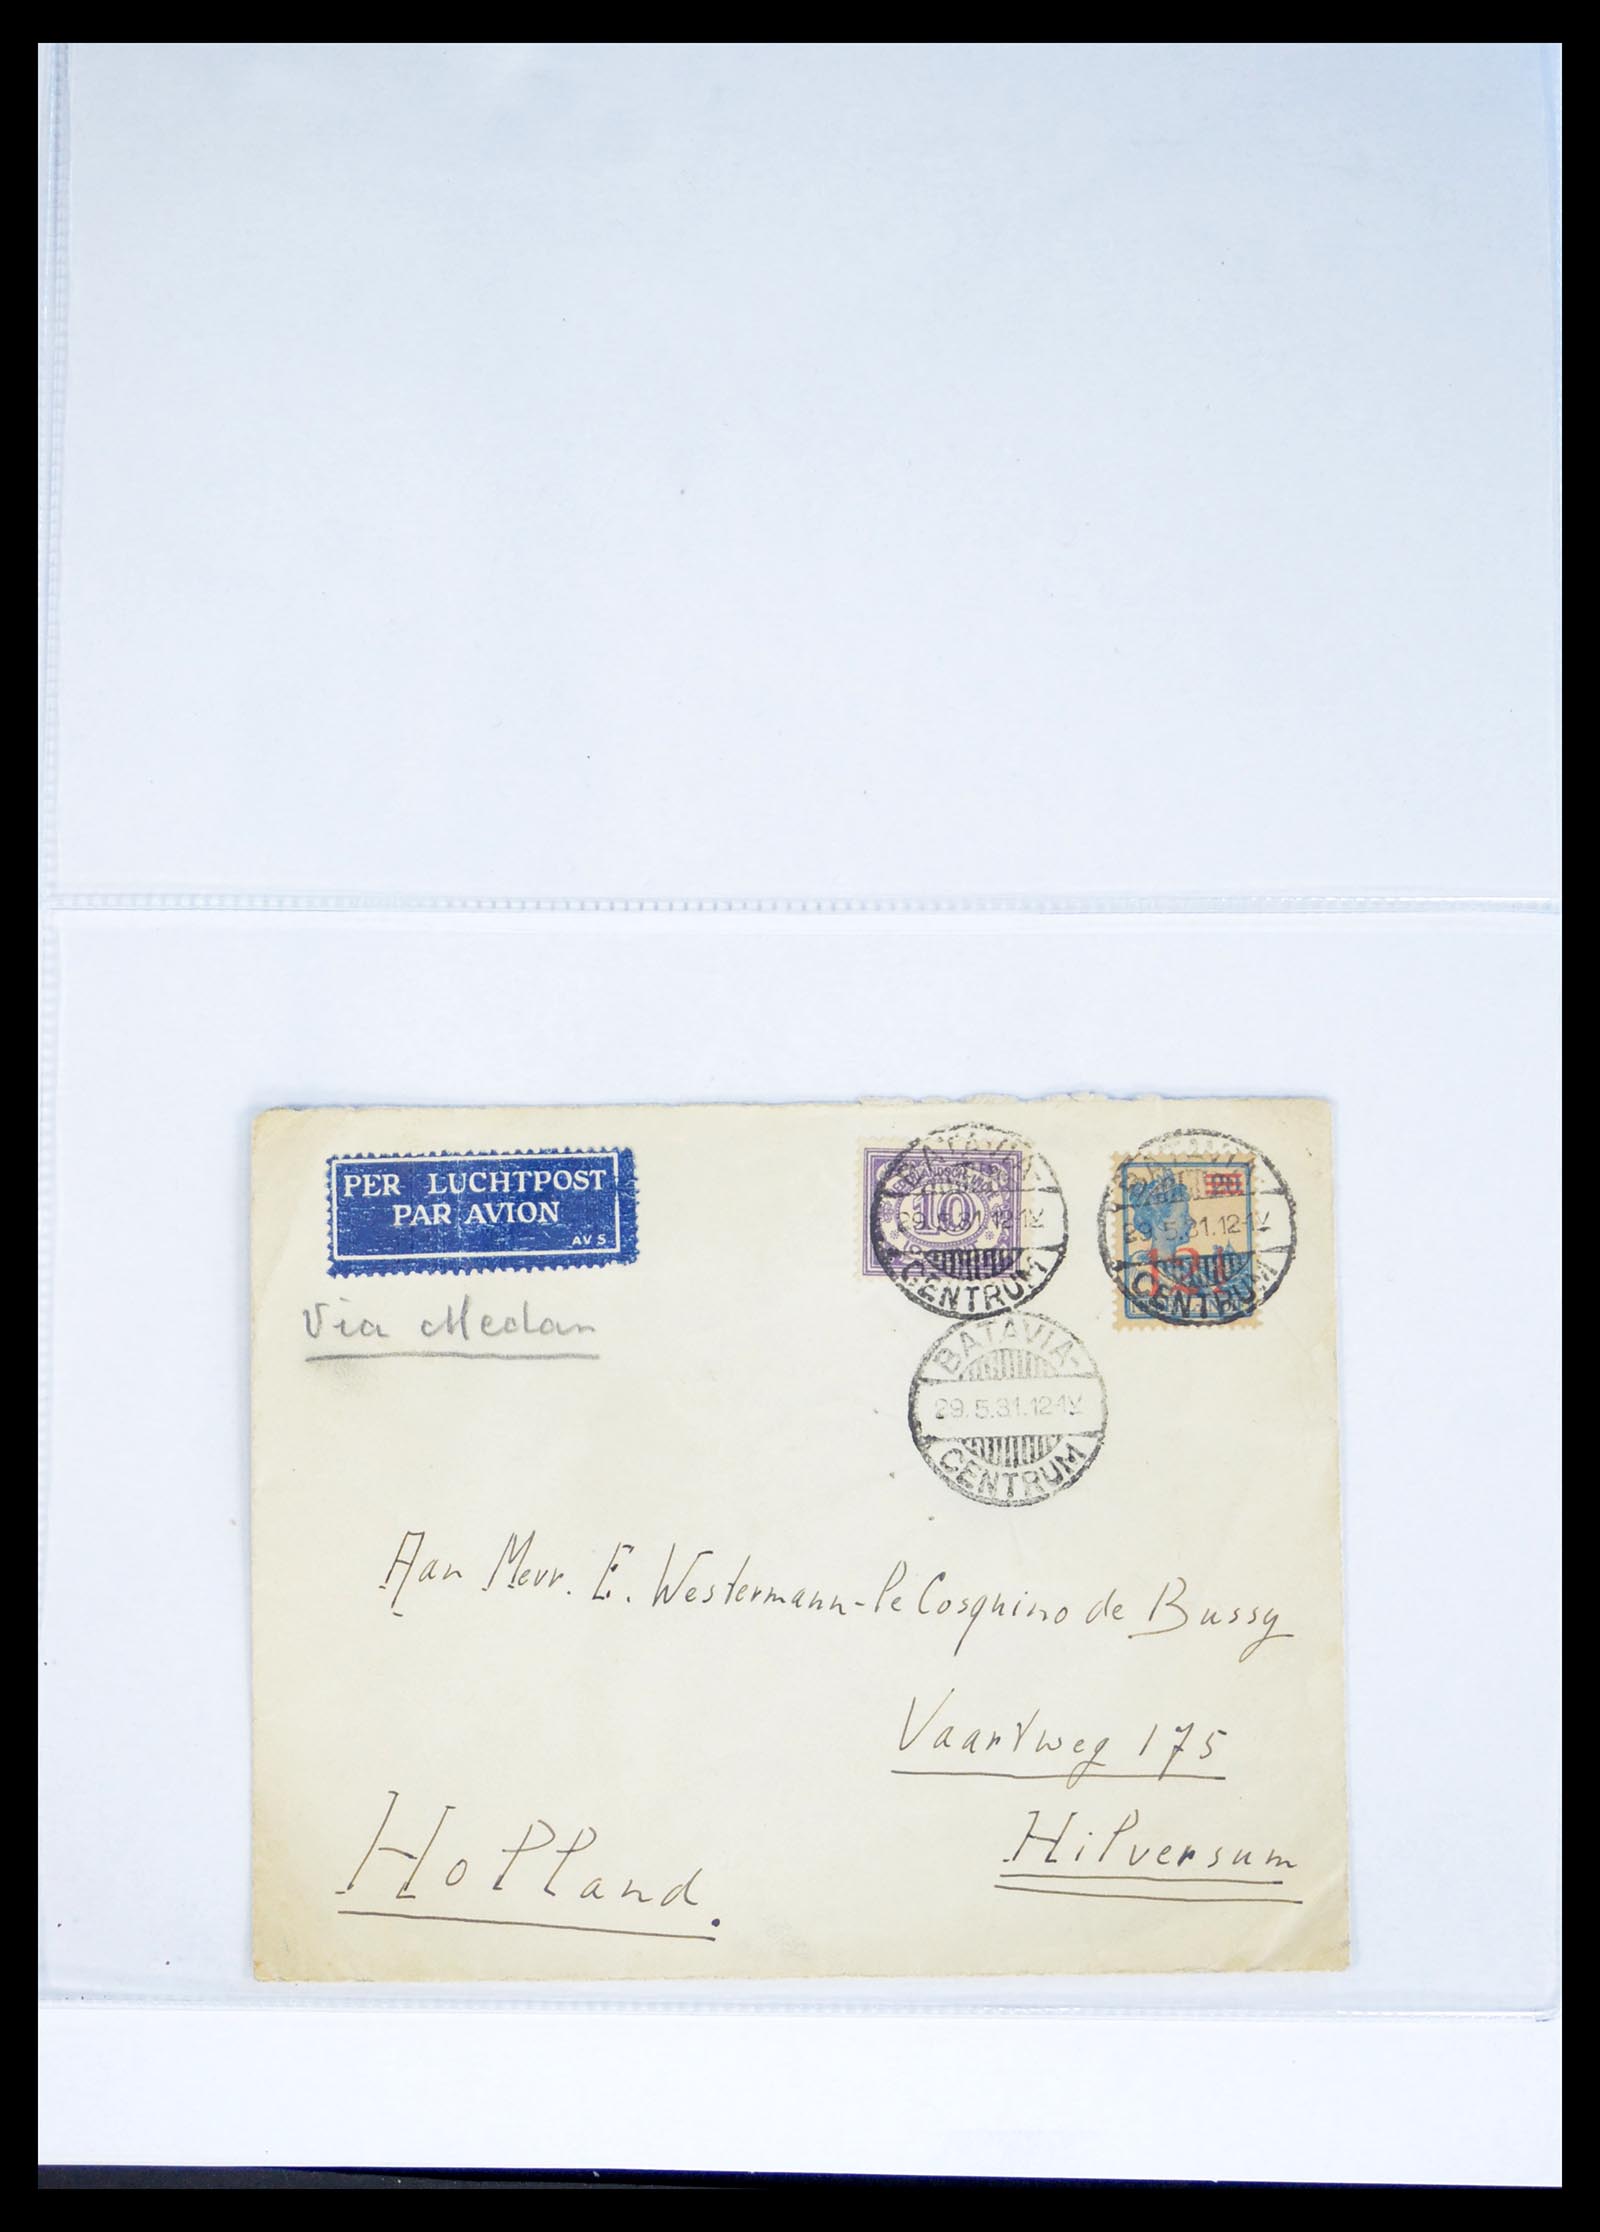 PER LUCHTPOST
PAR AVION
AV 5
Via Medan
10
BATAVIA-
29.5.31.12-1V
CENTRUM
20
29.5.31.12-1V
CENTRUM
BATAVIA-
29.5.31.12-1V
CENTRUM
Aan Mevr. E. Westermann-le Cosquino de Bussy
Vaartweg 175
Hilversum
Holland.